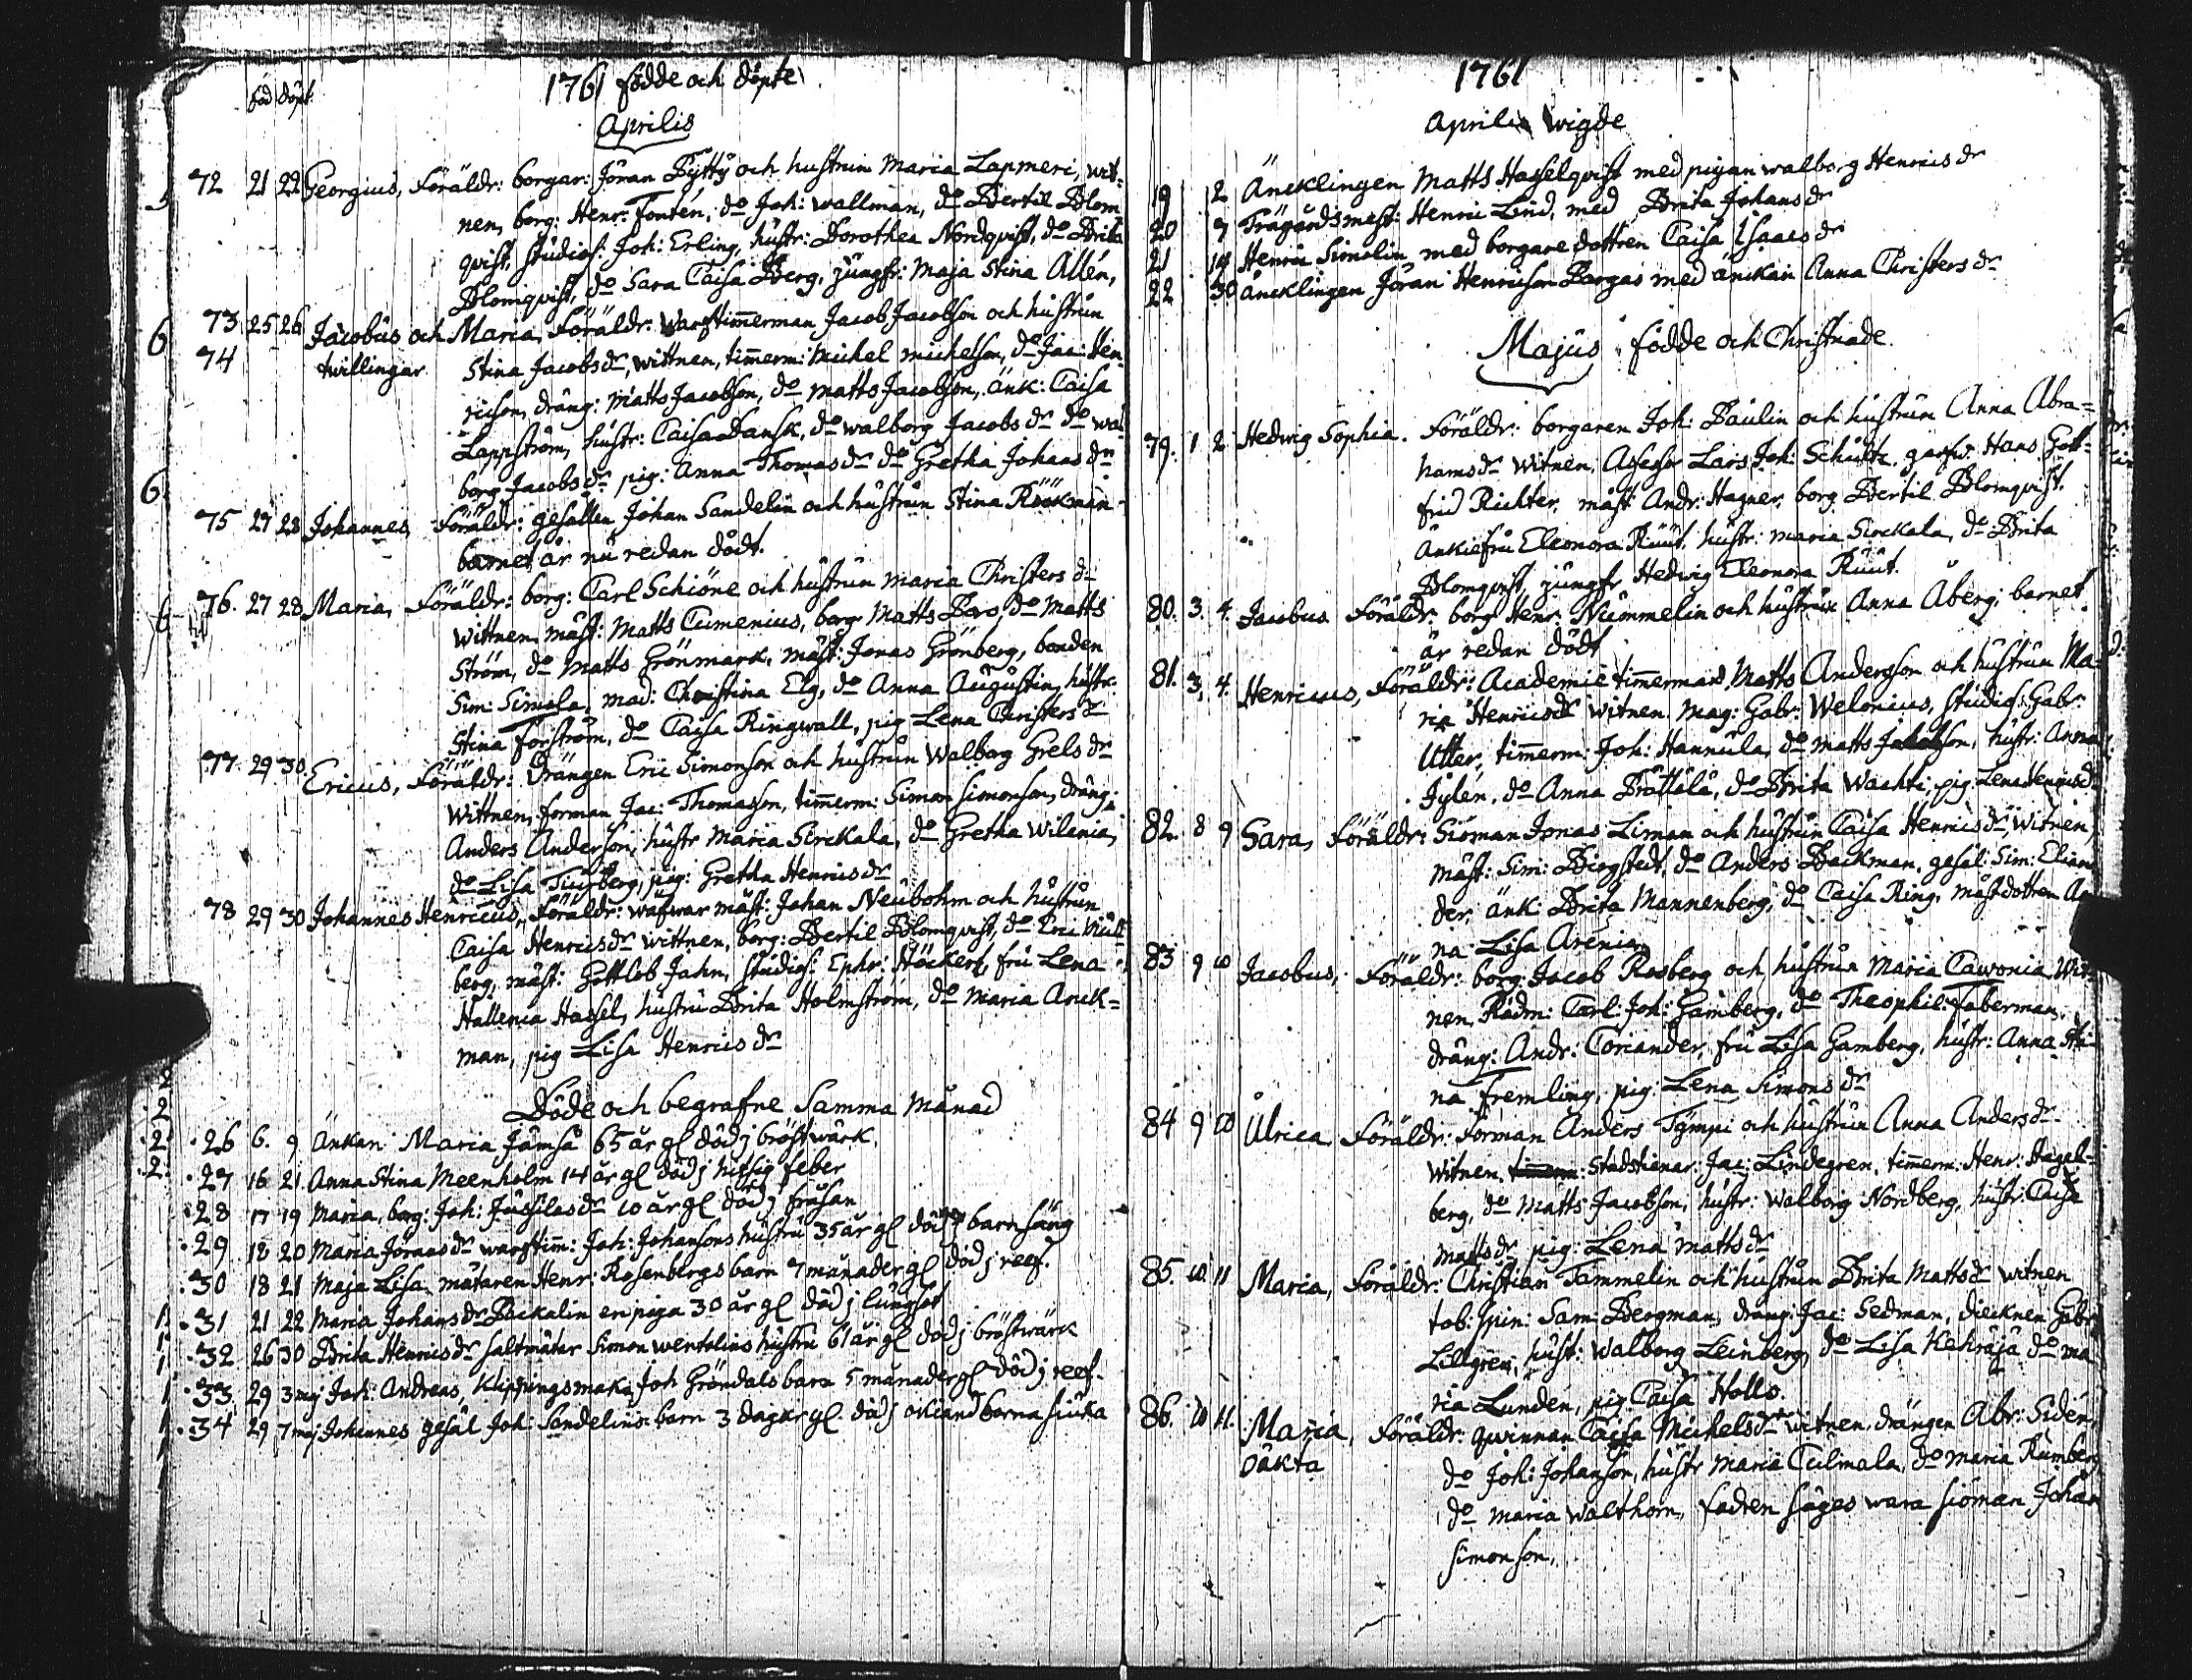 1761 födde och döpte
föd döpt
Aprilis
72 21 22 Georgius, Föräldr: borgar: Jöran Pytty och hustrun Maria Lapmeri, wit-
nen, borg: Henr: Fontén, do Joh: Wallman, do Bertil Blom
qvist, studios: Joh: Erling, hustr: Dorothea Nordqvist, do Brita
Blomqvist, do Sara Caisa Berg, jungfr: Maja Stina Allén,
73 25 26 Jacobus och Maria, Föräldr: Warfstimmerman Jacob Jacobson och hustrun
74 twillingar Stina Jacobsdr, wittnen, timmerm: Michel Michelsson, do Jac: Hen
ricson, dräng: Matts Jacobson, do Matts Jacobson, änk: Caisa
Lappström, hustr: Caisa Dansk, do Walborg Jacobsdr do Wal
borg Jacobsdr pig: Anna Thomasdr do Gretha Johansdr
75 27 28 Johannes, Föräldr: gesällen Johan Sandelin och hustrun Stina Röökman
barnet är nu redan dödt.
76. 27 28 Maria, Föräldr: borg: Carl Schiöne och hustrun Maria Christersdr
Wittnen, mäst: Matts Cumenius, borg Matts Berg, do Matts
Ström, do Matts Grönmark, mäst: Jonas Grönberg, bonden
Sim: Simola, mad: Christina Elg, do Anna Augustin, hustr.
Stina Forström, do Caisa Ringwall, pig Lena Christersdr
77. 29 30. Ericus, Föräldr: Drängen Eric Simonson och hustrun Walborg Grelsdr
Wittnen, forman Jac: Thomasson, timmerm: Simon Simonson, dräng:
Anders Anderson, hustr Maria Sirckala, do Gretha Wilania,
do Lisa Tiurberg, pig: Gretha Henricsdr
78 29 30 Johannes Henricus, Föräldr: wäfwar mäst: Johan Neubohm och hustrun
Caisa Henricsdr wittnen, borg: Bertil Blomqvist, do Eric
berg, mäst: Gottlob Jahn, studios: Ephr: Höckert, fru Lena
Hallenia Hassel, hustru Brita Holmström, do Maria Anck-
man, pig Lisa Henricsdr
Döde och begrafne Samma Månad
26 6. 9 Änkan Maria Jämsä 65 år gl död j bröstwärk.
27 16 21 Anna Stina Meenholm 14 år gl död j hetsig feber
28 17 19 Maria, borg: Joh: Jussilas dr 10 år gl död j frusan
29 18 20 Maria Jöransdr warfstim: Joh: Johansons hustru 35 år gl död j barnsäng
30 18 21 Maja Lisa, mätaren Henr: Rosenbergs barn 7 månader gl död j reef.
31 21 22 Maria Johansdr Backalin en piga 30 år gl död j lungsot
32 26 30 Brita Henricsdr saltmätar Simon Wentelins hustru 61 år gl död j bröstwärk
33 29 3 maj Joh: Andreas, Klippingsmak: Joh Gröndals barn 5 månader gl död j reef.
34 29 7 maj Johannes gesäl Joh Sandelins barn 3 dagar gl. död j okiand barnasiuka
1761
Aprilis Wigde
19 2 Äncklingen Matts Hasselqvist med pigan Walborg Henricsdr
20 7 Trägårdsmest: Henric Lind, med Brita Johansdr
21 14 Henric Simolin med borgare dottren Caisa Isaacsdr
22 30 äncklingen Jöran Henricson Borgas med änckan Anna Christersdr
Majus födde och Christnade
79. 1 2 Hedwig Sophia. Föräldr: borgaren Joh: Paulin och hustrun Anna Abra=
hamsdr Witnen, Assessor Lars Joh: Schultz, garfw. Hans Gott-
frid Richter, mäst Andr: Hagner, borg Bertil Blomqvist.
änkiefru Eleonora Ruut, hustr: Maria Sirckala, do Brita
Blomqvist, jungfr Hedwig Eleonora Ruut.
80. 3. 4. Jacobus Föräldr: borg Henr: Nummelin och hustrun Anna Åberg, barnet
är redan dödt
81. 3. 4. Henricus, Föräldr: Academie timmerman Matts Andersson och hustrun Ma-
ria Henricsdr Witnen. Mag: Gabr: Welonius, studios: Gabr:
Utter, timmerm: Joh: Hannula, do Matts Jacobson, hustr: Anna
Jylén, do Anna Prättälä, do Brita Wachti, pig: Lena Henricsd
82. 8 9 Sara, Föräldr: Sioman Jonas Liman och hustrun Caisa Henricsdr, Witnen,
mäst: Sim: Bergstedt, do Anders Backman, gesäl: Sim: Elian
der, änk Brita Mannenberg, do Caisa Ring, mäst dottren An
na Lisa Arenia
83 9 10 Jacobus, Föräldr: borg: Jacob Rosberg och hustrun Maria Cawonia Wit-
nen, Rådm: Carl: Joh: Gamberg, do Theophil: Faberman,
dräng: Andr: Coriander, fru Lisa Gamberg, hustr: Anna Sti-
na Fremling, pig: Lena Simonsdr
84 9 10 Ulrica, Föräldr: Forman Anders Tymпi och hustrun Anna Andersdr
Witnen, Stadstienar: Jac: Lindegren, timmerm: Henr: Hagel-
berg, do Matts Jacobson, hustr: Walborg Nordberg, hustr: Caisa
Mattsdr pig: Lena Mattsdr
85. 10. 11 Maria, Föräldr: Christian Tammelin och hustrun Brita Mattsdr witnen
tob: spin: Sam: Bergman, dräng: Jac: Sedman, diecknen Gabr
Lillgren, hust: Walborg Leinberg, do Lisa Kekräja do Ma
ria Lunden, pig Caisa Hollo.
86. 10 11. Maria, Föräldr: qwinnan Caisa Michelsdr witnen, drängen Abr: Sidén,
oäkta do Joh: Johanson, hustr Maria Culmala, do Maria Rumberg
do Maria Walthorn, fadren säges wara sioman Johan
Simonson.